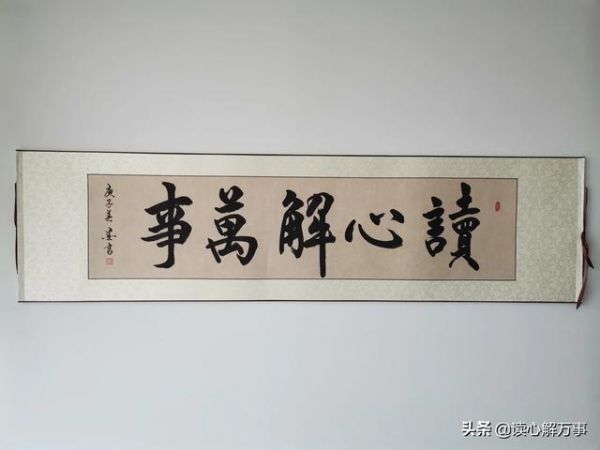 讀心解萬事
庚子美書
头条 @读心解万事